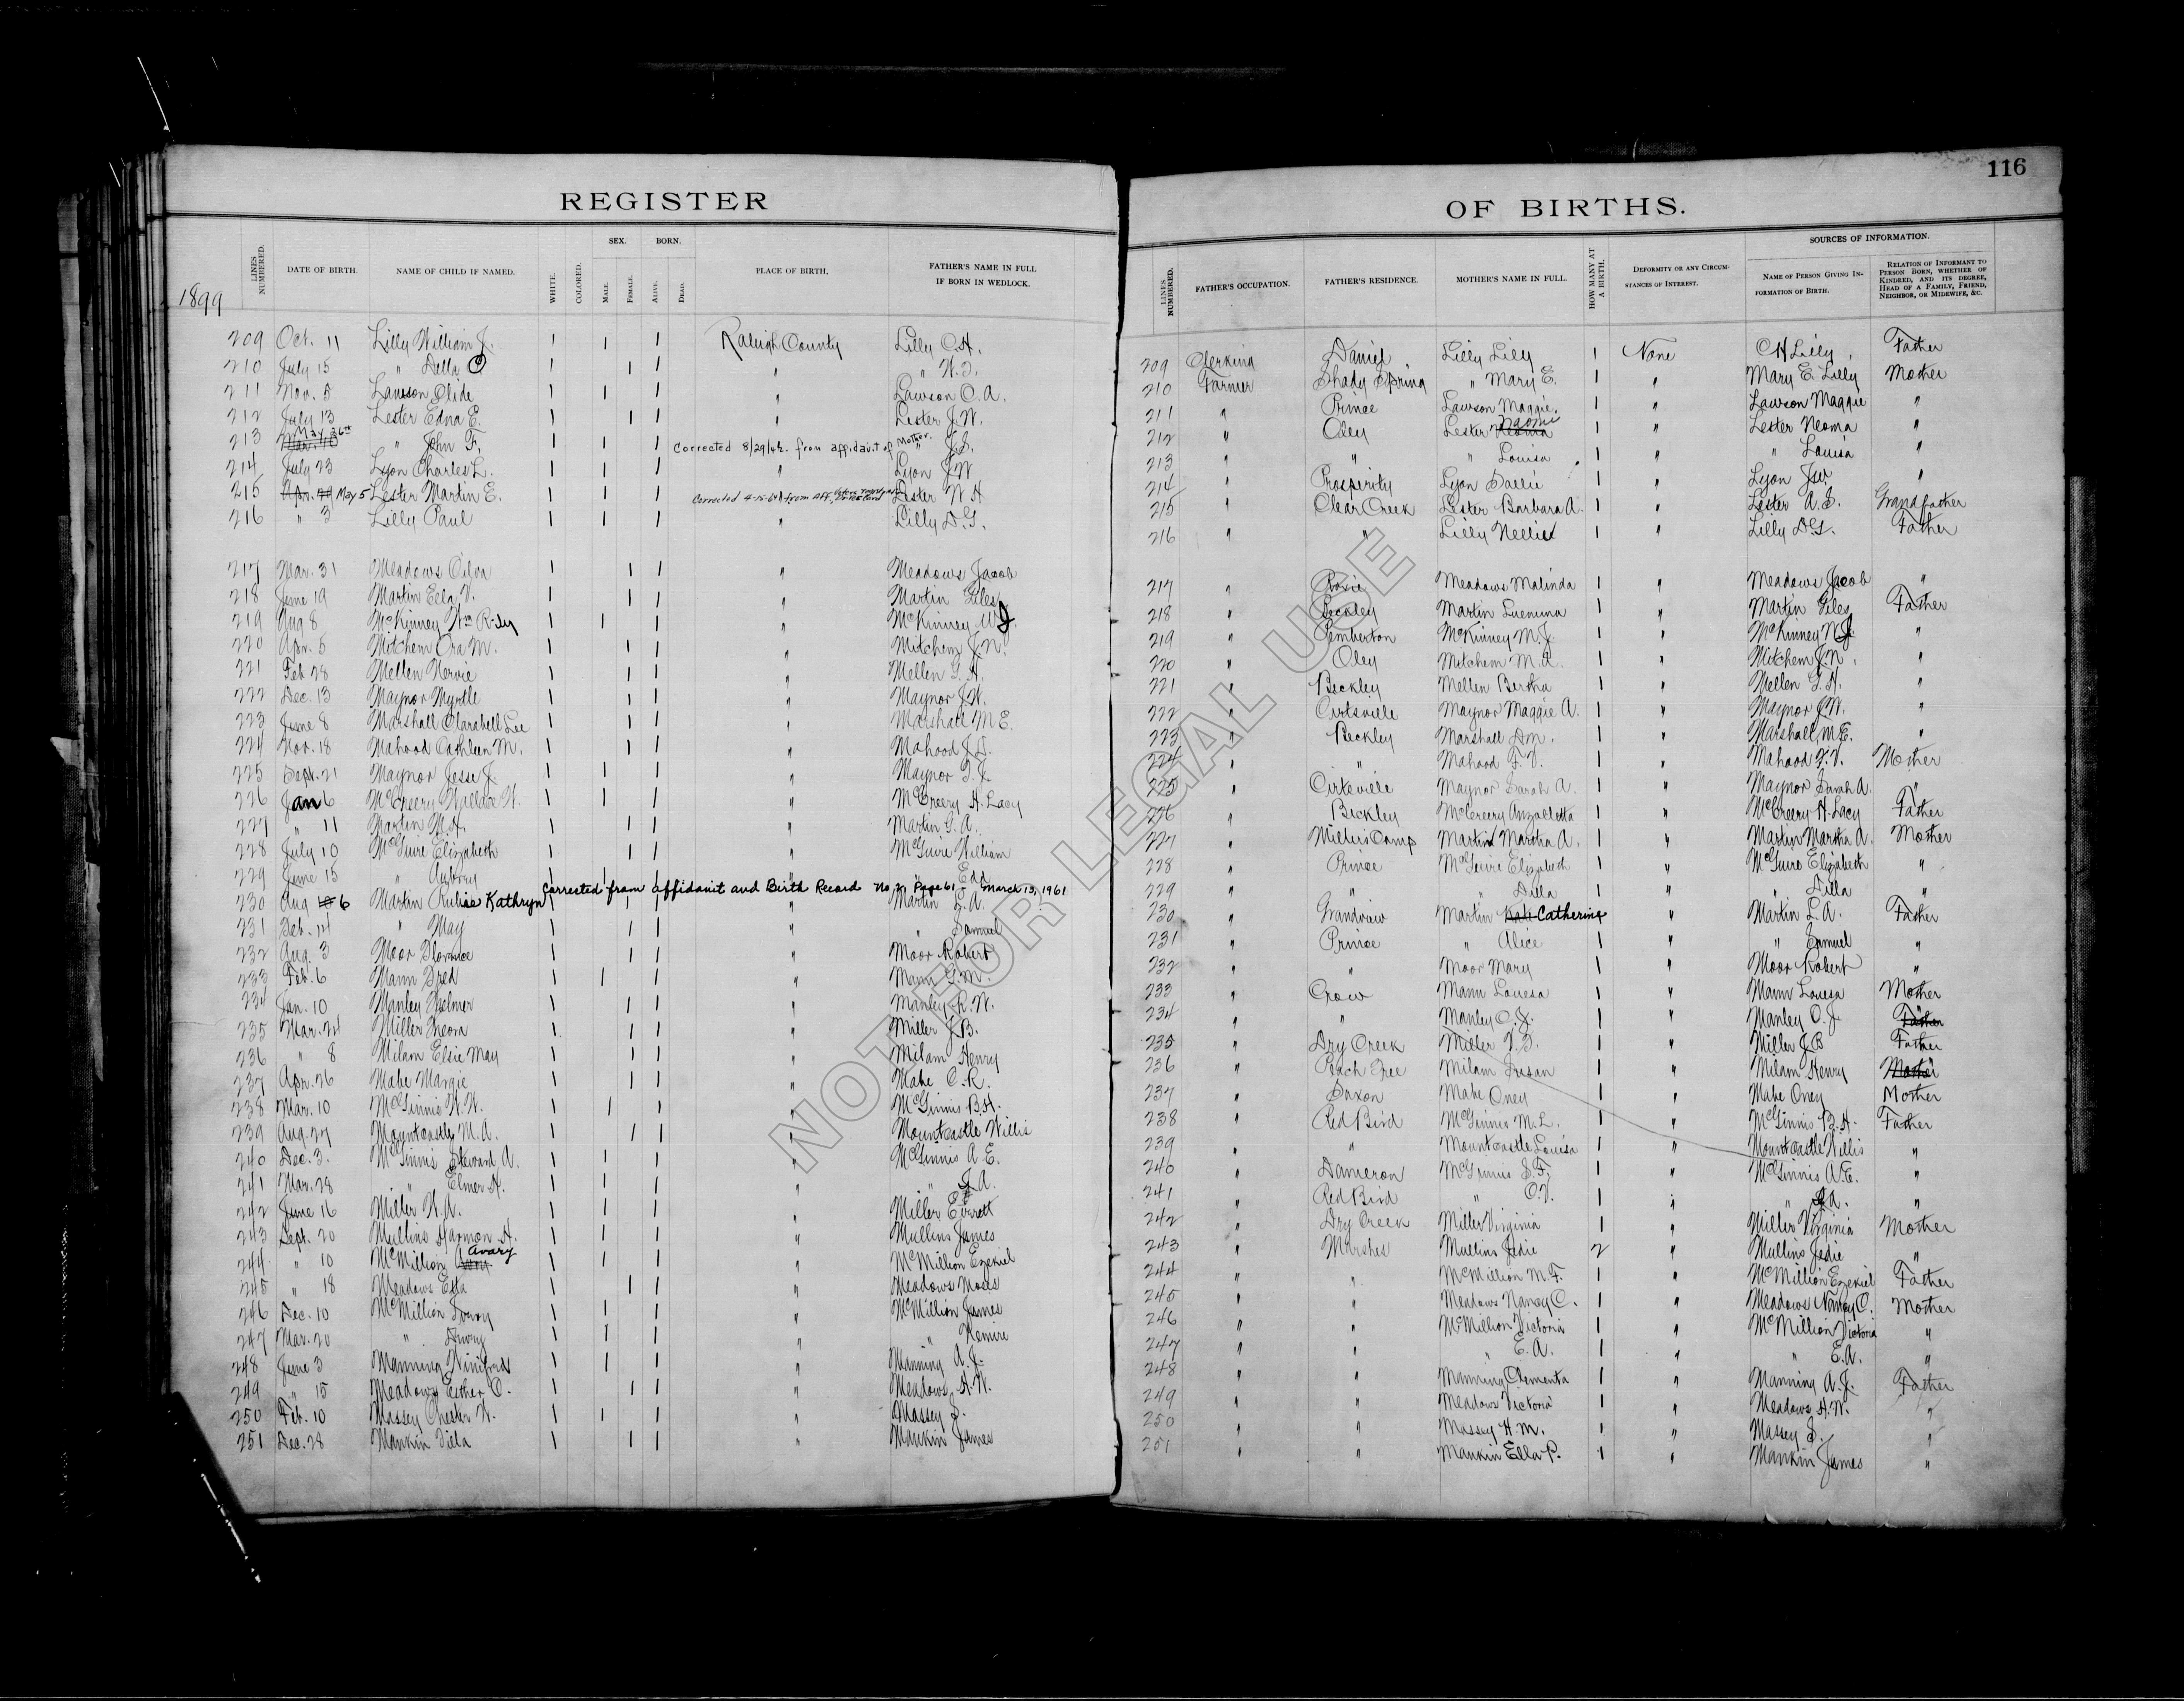 116
REGISTER OF BIRTHS.
1899
LINES NUMBERED. DATE OF BIRTH. NAME OF CHILD IF NAMED. WHITE. COLORED. SEX. MALE. FEMALE. BORN. ALIVE. DEAD. PLACE OF BIRTH. FATHER'S NAME IN FULL. IF BORN IN WEDLOCK.
LINES NUMBERED. FATHER'S OCCUPATION. FATHER'S RESIDENCE. MOTHER'S NAME IN FULL. HOW MANY AT A BIRTH. DEFORMITY OR ANY CIRCUMSTANCES OF INTEREST. SOURCES OF INFORMATION. NAME OF PERSON GIVING INFORMATION OF BIRTH. RELATION OF INFORMANT TO PERSON BORN, WHETHER OF KINDRED, AND ITS DEGREE, HEAD OF A FAMILY, FRIEND, NEIGHBOR, OR MIDWIFE, &C.
209 Oct. 11 Lilly William J. 1 1 1 Raleigh County Lilly C.H.
210 July 15 " Della O 1 1 1 " " W.T.
211 Nov. 5 Lawson Clide 1 1 1 " Lawson C.A.
212 July 13 Lester Edna E. 1 1 1 " Lester J.W.
213 May 26th " John F. 1 1 1 Corrected 8/29/42. from affidavit of Mother. " J.S.
214 July 23 Lyon Charles L. 1 1 1 " Lyon J.W
215 May 5 Lester Martin E. 1 1 1 Corrected 4-15-61 from Aff. Lester W.H
216 " 3 Lilly Paul 1 1 1 " Lilly D.G.
217 Mar. 31 Meadows 1 1 1 " Meadows Jacob
218 June 19 Martin Ella V. 1 1 1 " Martin Giles
219 Aug 8 McKinney Wm Riley 1 1 1 " McKinney W J.
220 Apr. 5 Mitchem Ora M. 1 1 1 " Mitchem J.N.
221 Feb 28 Mellen Nervie 1 1 1 " Mellen G.H.
222 Dec. 13 Maynor Myrtle 1 1 1 " Maynor J.W.
223 June 8 Marshall Clarabell Lee 1 1 1 " Marshall M E.
224 Nov. 18 Mahood Cathleen M. 1 1 1 " Mahood
225 Sept. 21 Maynor Jesse J. 1 1 1 " Maynor
226 Jan 6 McCreery Wallace W. 1 1 1 " McCreery H. Lacy
227 " 11 Martin M.H. 1 1 1 " Martin G.A.
228 July 10 McGuire Elizabeth 1 1 1 " McGuire William
229 June 15 " Aubrey 1 1 1 " " Edd
Corrected from affidavit and Birth Record No. 2, Page 61 - March 13, 1961
230 Aug 6 Martin Kathryn 1 1 1 " Martin L.A.
231 Feb. 14 " May 1 1 1 " " Samuel
232 Aug. 3 Moor Florence 1 1 1 " Moor Robert
233 Feb. 6 Mann Fred 1 1 1 " Mann G.M.
234 Jan. 10 Manley 1 1 1 " Manley R.W.
235 Mar. 24 Miller Neora 1 1 1 " Miller J.B.
236 " 8 Milam Elsie May 1 1 1 " Milam Henry
237 Apr. 26 Mabe Margie 1 1 1 " Mabe C.R.
238 Mar. 10 McGinnis W.W. 1 1 1 " McGinnis B.H.
239 Aug. 27 Mountcastle M.A. 1 1 1 " Mountcastle Willis
240 Dec. 3. McGinnis A. 1 1 1 " McGinnis A E.
241 Mar. 28 " Elmer H. 1 1 1 " " A.
242 June 16 Miller W.A. 1 1 1 " Miller Everett
243 Sept. 20 Mullins Harmon H. 1 1 1 " Mullins James
244 " 10 McMillion Avary 1 1 1 " McMillion Ezekiel
245 " 18 Meadows Etta 1 1 1 " Meadows Moses
246 Dec. 10 McMillion 1 1 1 " McMillion James
247 Mar. 20 " Dewey 1 1 1 " "
248 June 3 Manning Winifred 1 1 1 " Manning A.J.
249 " 15 Meadows Esther O. 1 1 1 " Meadows H.W.
250 Feb. 10 Massey Chester W. 1 1 1 " Massey S.
251 Dec. 28 Mankin Villa 1 1 1 " Mankin James
209 Clerking Daniel Lilly Lily 1 None C H Lilly Father
210 Farmer Shady Spring " Mary E. 1 " Mary E. Lilly Mother
211 " Prince Lawson Maggie. 1 " Lawson Maggie "
212 " Odey Lester Naomi 1 " Lester Neoma "
213 " " " Louisa 1 " " Louisa "
214 " Prosperity Lyon Sallie 1 " Lyon J.W. "
215 " Clear Creek Lester Barbara A. 1 " Lester A.S. Grandfather
216 " " Lilly Nellie 1 " Lilly D.G. Father
217 " Meadows Malinda 1 " Meadows Jacob "
218 " Beckley Martin Luemma 1 " Martin Giles Father
219 " Pemberton McKinney M.J. 1 " McKinney W.J. "
220 " Odey Mitchem M.A. 1 " Mitchem J.N. "
221 " Beckley Mellen Bertha 1 " Mellen G.H. "
222 " Cirtsville Maynor Maggie A. 1 " Maynor J.W. "
223 " Beckley Marshall D.M. 1 " Marshall, M.E. "
224 " " Mahood F.V. 1 " Mahood F.V. Mother
225 " Cirtsville Maynor Sarah A. 1 " Maynor Sarah A. "
226 " Beckley McCreery Anzolletta 1 " McCreery H. Lacy Father
227 " Miller's Camp Martin Martha A. 1 " Martin Martha A. Mother
228 " Prince McGuire Elizabeth 1 " McGuire Elizabeth "
229 " " " Dilla 1 " " Dilla "
230 " Grandview Martin Catherine " Martin L.A. Father
231 " Prince " Alice 1 " " Samuel "
232 " " Moor Mary 1 " Moor Robert "
233 " Crow Mann Louesa 1 " Mann Louesa Mother
234 " " Manley O.J. 1 " Manley O.J. "
235 " Dry Creek Miller V.B. 1 " Miller J.B Father
236 " Peach Tree Milam Susan 1 " Milam Henry "
237 " Saxon Mabe Oney 1 " Mabe Oney Mother
238 " Red Bird McGinnis M.L. 1 " McGinnis B.H. Father
239 " " Mountcastle Louisa 1 " Mountcastle Willis "
240 " Dameron McGinnis S.F. 1 " McGinnis A.E. "
241 " Red Bird " O.V. 1 " " A. "
242 " Dry Creek Miller Virginia 1 " Miller Virginia Mother
243 " Marshes Mullins Jedie 2 " Mullins Jedie "
244 " " McMillion M.F. 1 " McMillion Ezekiel Father
245 " " Meadows Nancy C. 1 " Meadows Nancy C. Mother
246 " " McMillion Victoria 1 " McMillion Victoria "
247 " " " E.A. 1 " " E.A. "
248 " " Manning Clementa 1 " Manning A.J. Father
249 " " Meadows Victoria 1 " Meadows H.W. "
250 " " Massey H.M. 1 " Massey S. "
251 " " Mankin Ella P. 1 " Mankin James "
NOT FOR LEGAL USE